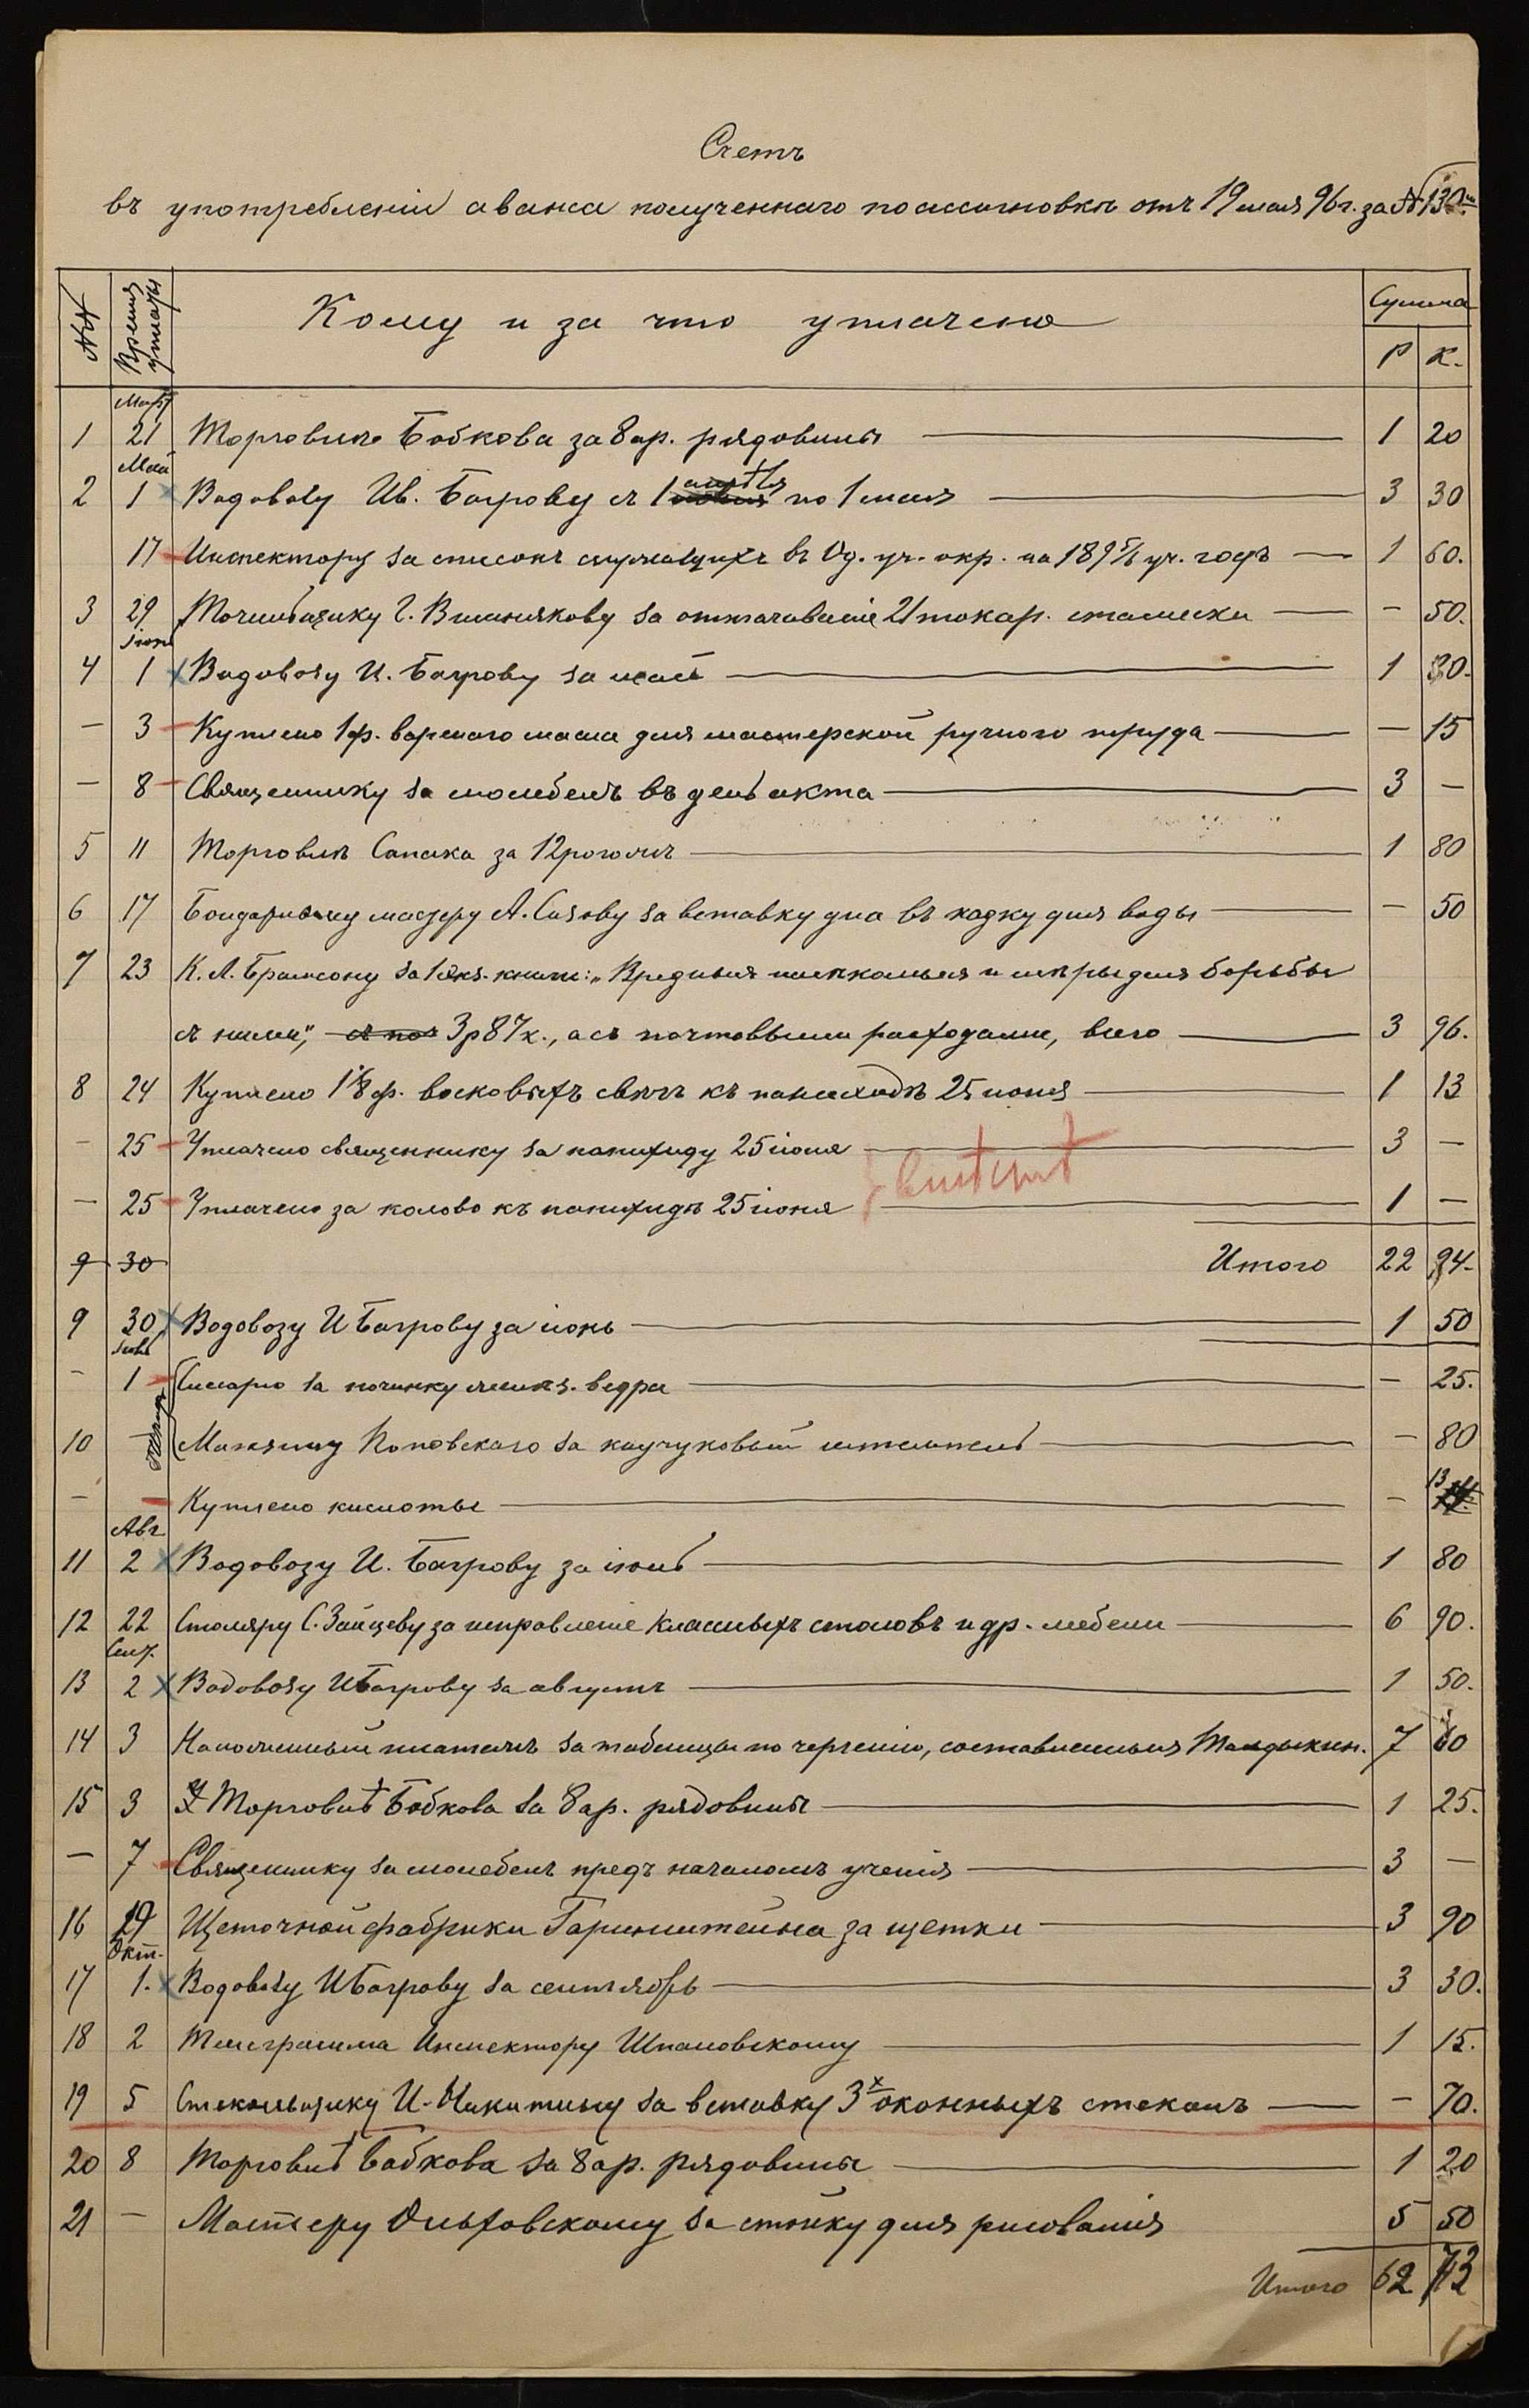 Счетъ
въ употребленіи аванса полученнаго по ассигновкѣ отъ 19 мая 96 г. за № 130
№№ Время уплаты Кому и за что уплачено Сумма
Р К.
Март
1 21 Торговлѣ Бабкова за 8 ар. рядовины — 1 20
Май
2 1 Водовозу Ив. Багрову съ 1 по 1 мая — 3 30
17 Инспектору за списокъ служащихъ въ Од. уч. окр. на 1895/6 уч. годъ — 1 60.
3 29 Точильщику Г. Вишнякову за оттачиваніе 21 токар. стамески — - 50.
Іюнь
4 1 Водовозу И. Багрову за май — 1 30.
— 3 Куплено 1 ф. варенаго масла для мастерской ручного труда — — 15
— 8 Священнику за молебенъ въ день акта — 3 —
5 11 Торговлѣ Сапака за 12 рогожъ — 1 80
6 17 Бондарному мастеру А. Сизову за вставку дна въ кадку для воды — - 50
7 23 К. Л. Брамсону за 1 экз. книги: „Вредныя насѣкомыя и мѣры для борьбы
съ ними", 3 р 87 к., а съ почтовыми расходами, всего — 3 96.
8 24 Куплено 1 1/8 ф. восковыхъ свѣчъ къ панихидѣ 25 іюня — 1 13
- 25 Уплачено священнику за панихиду 25 іюня — 3 —
- 25 Уплачено за коливо къ панихидѣ 25 іюня — 1 —
9 30 Итого 22 94.
9 30 Водовозу И Багрову за іюнь — 1 50
Іюль
- 1 Слесарю за починку ведра — - 25.
10 Магазину Поповскаго за каучуковый штемпель — - 80
- - Куплено кислоты — - 13
Авг.
11 2 Водовозу И. Багрову за іюль — 1 80
12 22 Столяру С. Зайцеву за исправленіе классныхъ столовъ и др. мебели — 6 90.
Сент.
13 2 Водовозу И Багрову за августъ — 1 50.
14 3 Наложеннымъ платежомъ за таблицы по черченію, составленныя 7 60
15 3 Торговлѣ Бабкова за 8 ар. рядовины — 1 25.
— 7 Священнику за молебенъ предъ началомъ ученія — 3 —
16 Щеточной фабрики Гаринштейна за щетки — 3 90
Окт.
17 1. Водовозу И Багрову за сентябрь — 3 30.
18 2 Телеграмма Инспектору Шпаковскому — 1 15.
19 5 Стекольщику И. Никитину за вставку 3х оконныхъ стеколъ — - 70.
20 8 Торговлѣ Бабкова за 8 ар. рядовины — 1 20
21 — Мастеру Ольховскому за стойку для рисованія 5 50
Итого 62 73